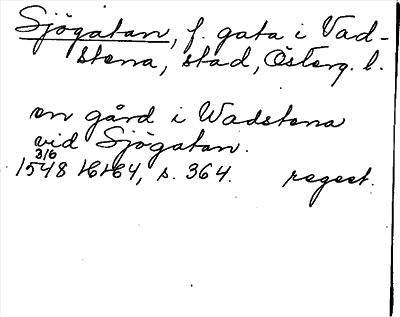 Sjögatan, f. gata i Vad-
stena, stad, Österg. l.
en gård i Wadstena
vid Sjögatan.
3/6
1548 HH64, s. 364. regest.